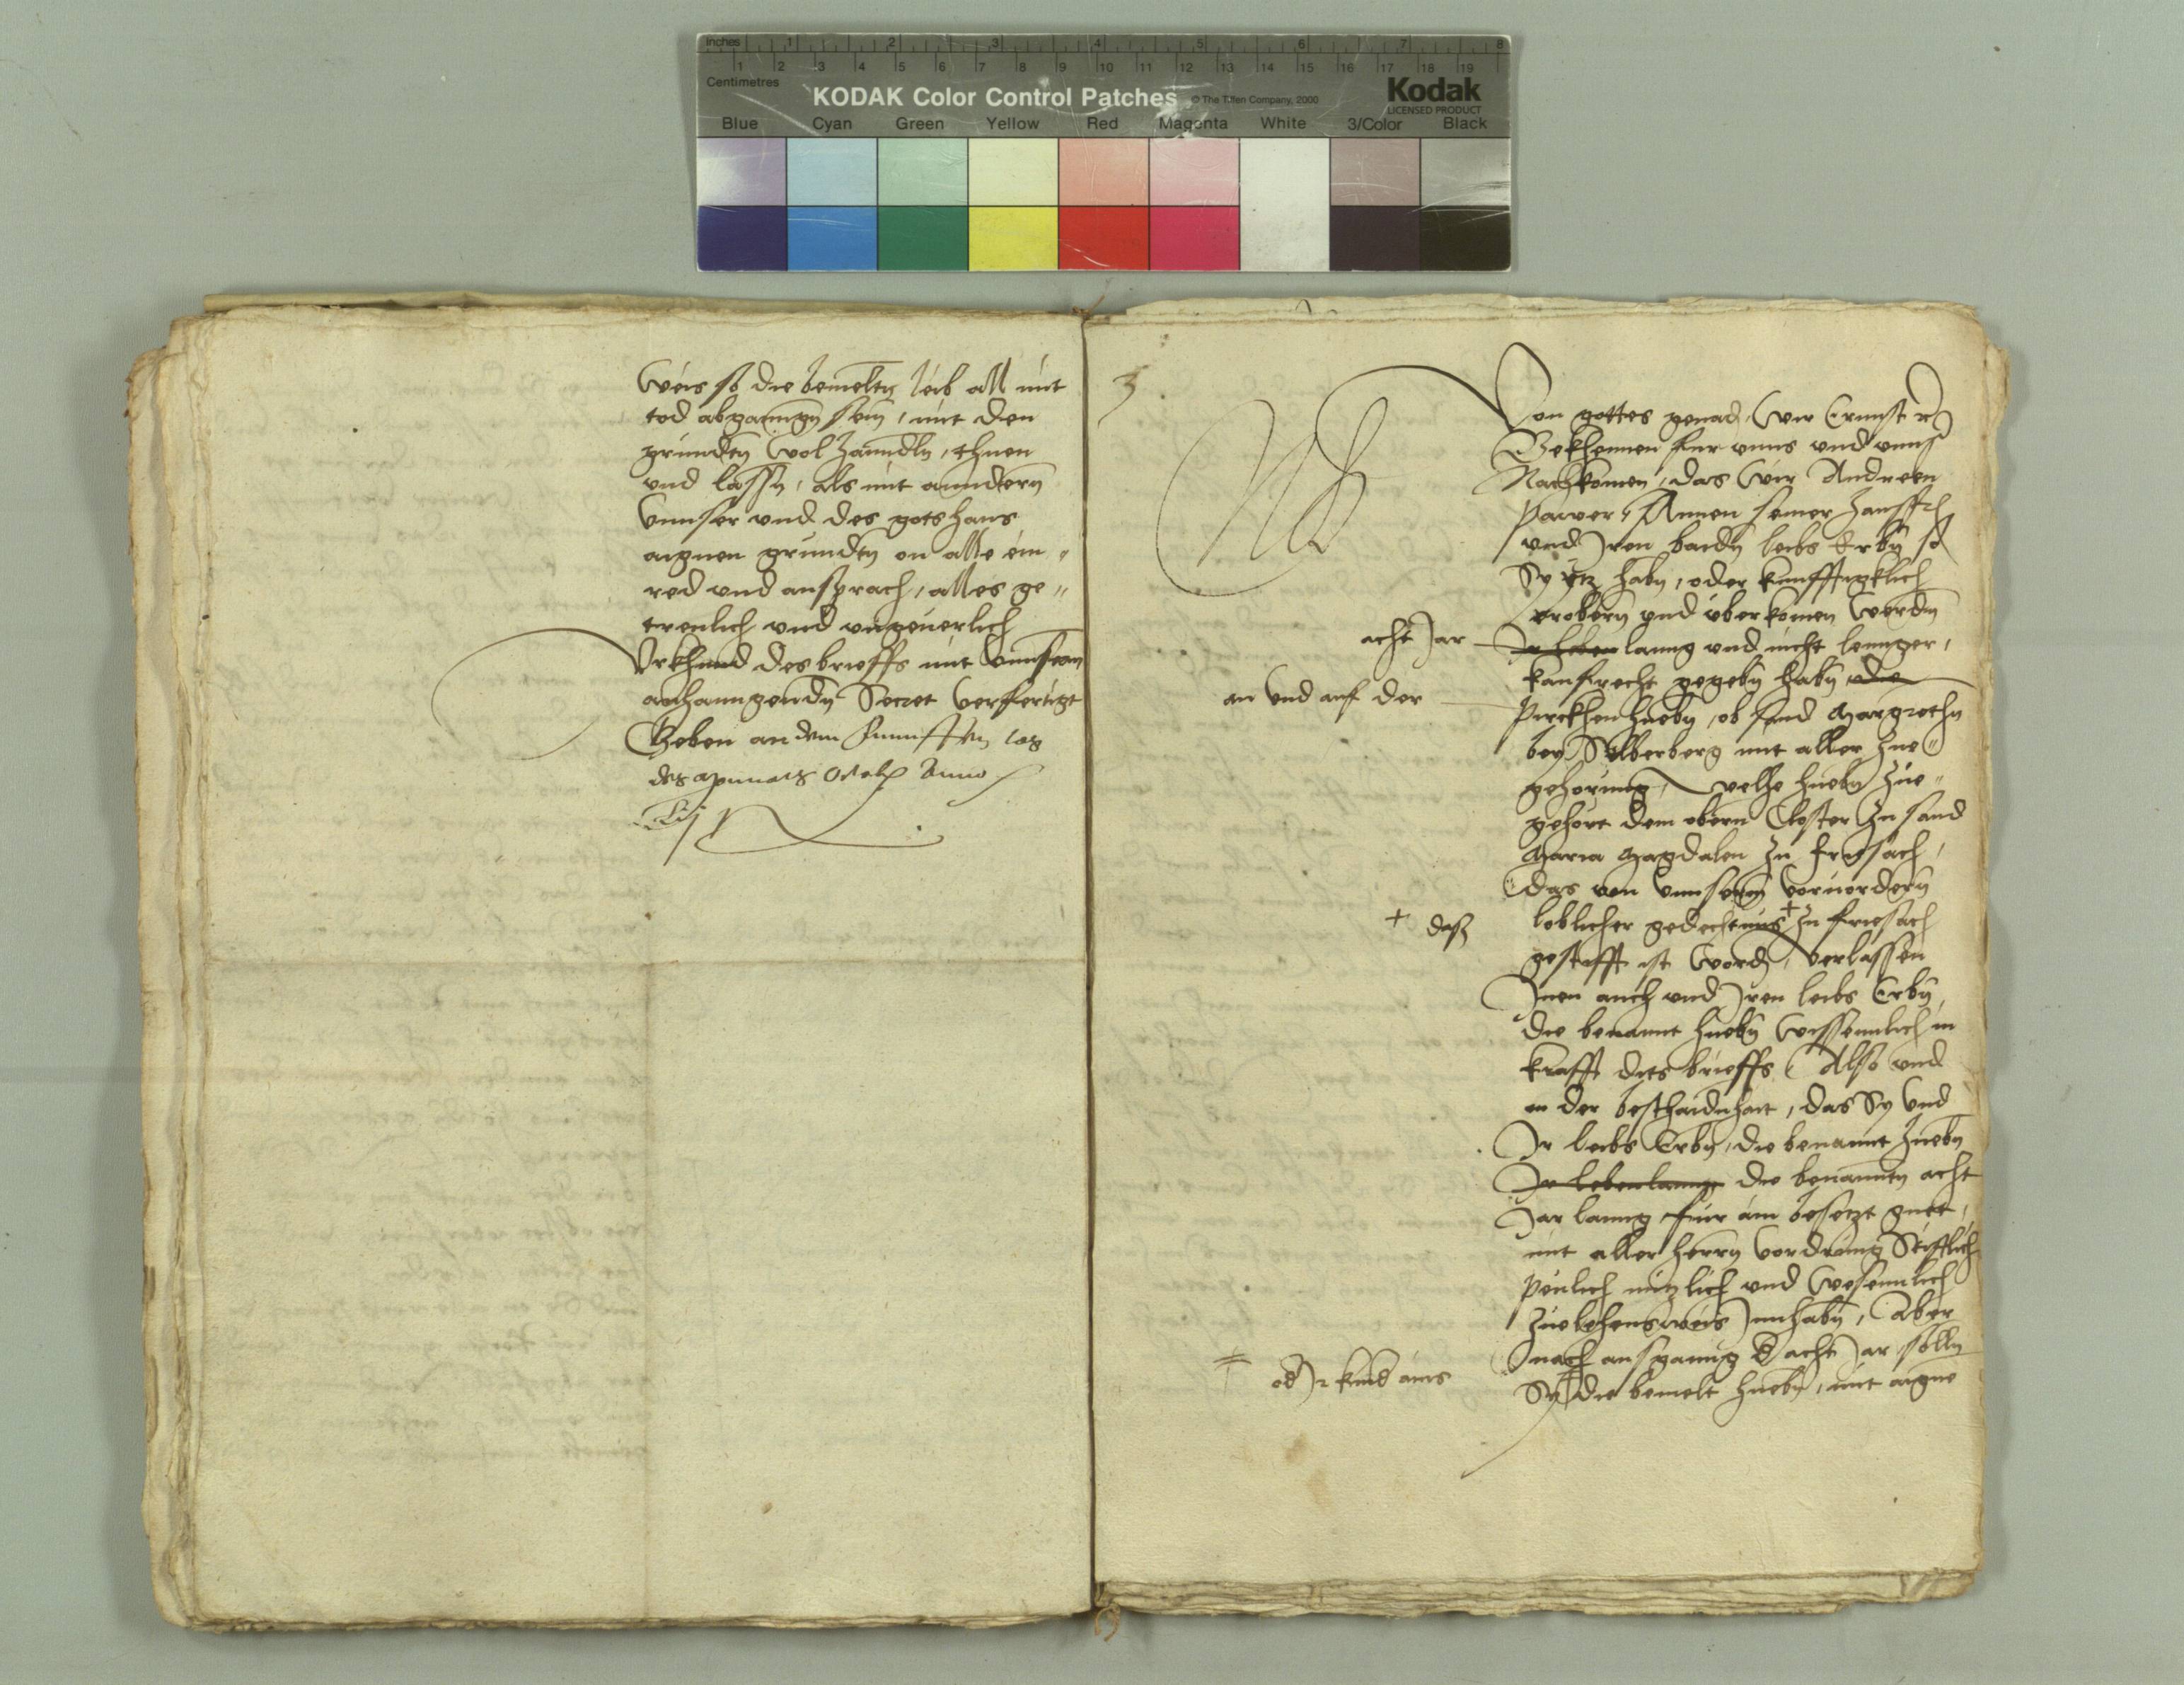 inches 1 2 3 4 5 6 7 8
1 2 3 4 5 6 7 8 9 10 11 12 13 14 15 16 17 18 19
Centimetres
KODAK Color Control Patches © The Tiffen Company, 2000 Kodak
LICENSED PRODUCT
Blue Cyan Green Yellow Red Magenta White 3/Color Black
weis so die bemeltn leib all mit
tod abganngn sein, mit den
grundtn wol hanndln, thuen
und lassn, als mit anndern
unnser und des gotshaus
aignen grundtn on alle ein"
red und ansprach, alles ge"
treulich und ungeuerlich
Urkhund des brieffs mit unnserm
anhanngendn Secret verfertigt
Geben an dem funfften tag
des monats Octobr Anno
3
Von gottes genad wir Ernnst
Bekhennen fur unns und unnser
Nachkomen, das wir Andreen
Pawer, Annen seiner hausfr
und Iren baidn leibs Erbn so
Sy ytz habn, oder kunfftigklich
erobern und uberkomen werdn
acht Jar
Ir leben lanng und nicht lennger,
kaufrecht gegebn habn die
an und auf der
Pirckhen huebn, ob sand Margrethn
bey Silberberg mit aller zue"
gehorung, welhe huebn zue"
gehort dem obern Closter zu sand
Maria Magdalen zu Friesach,
das von unnsern voruordern
loblicher gedechtnus + zu friesach
+ dass
gestifft ist word, verlassen
Inen auch und Iren leibs Erbn,
die benannt huebn wissenntlich in
krafft dits brieffs Also und
in der beschaidnhait, das Sy und
Ir leibs Erbn, die benannt huebn
Ir lebenlanng die benanntn acht
Jar lanng fur ain besetzt guet,
mit aller herrn vordrung Stifftlich
peulich nutzlich und wesenntlich
zuelehensweis Innhabn, Aber
nach ausganng d acht Jar solln
Sy die bemelt huebn, mit aigne
od Ir kind ains